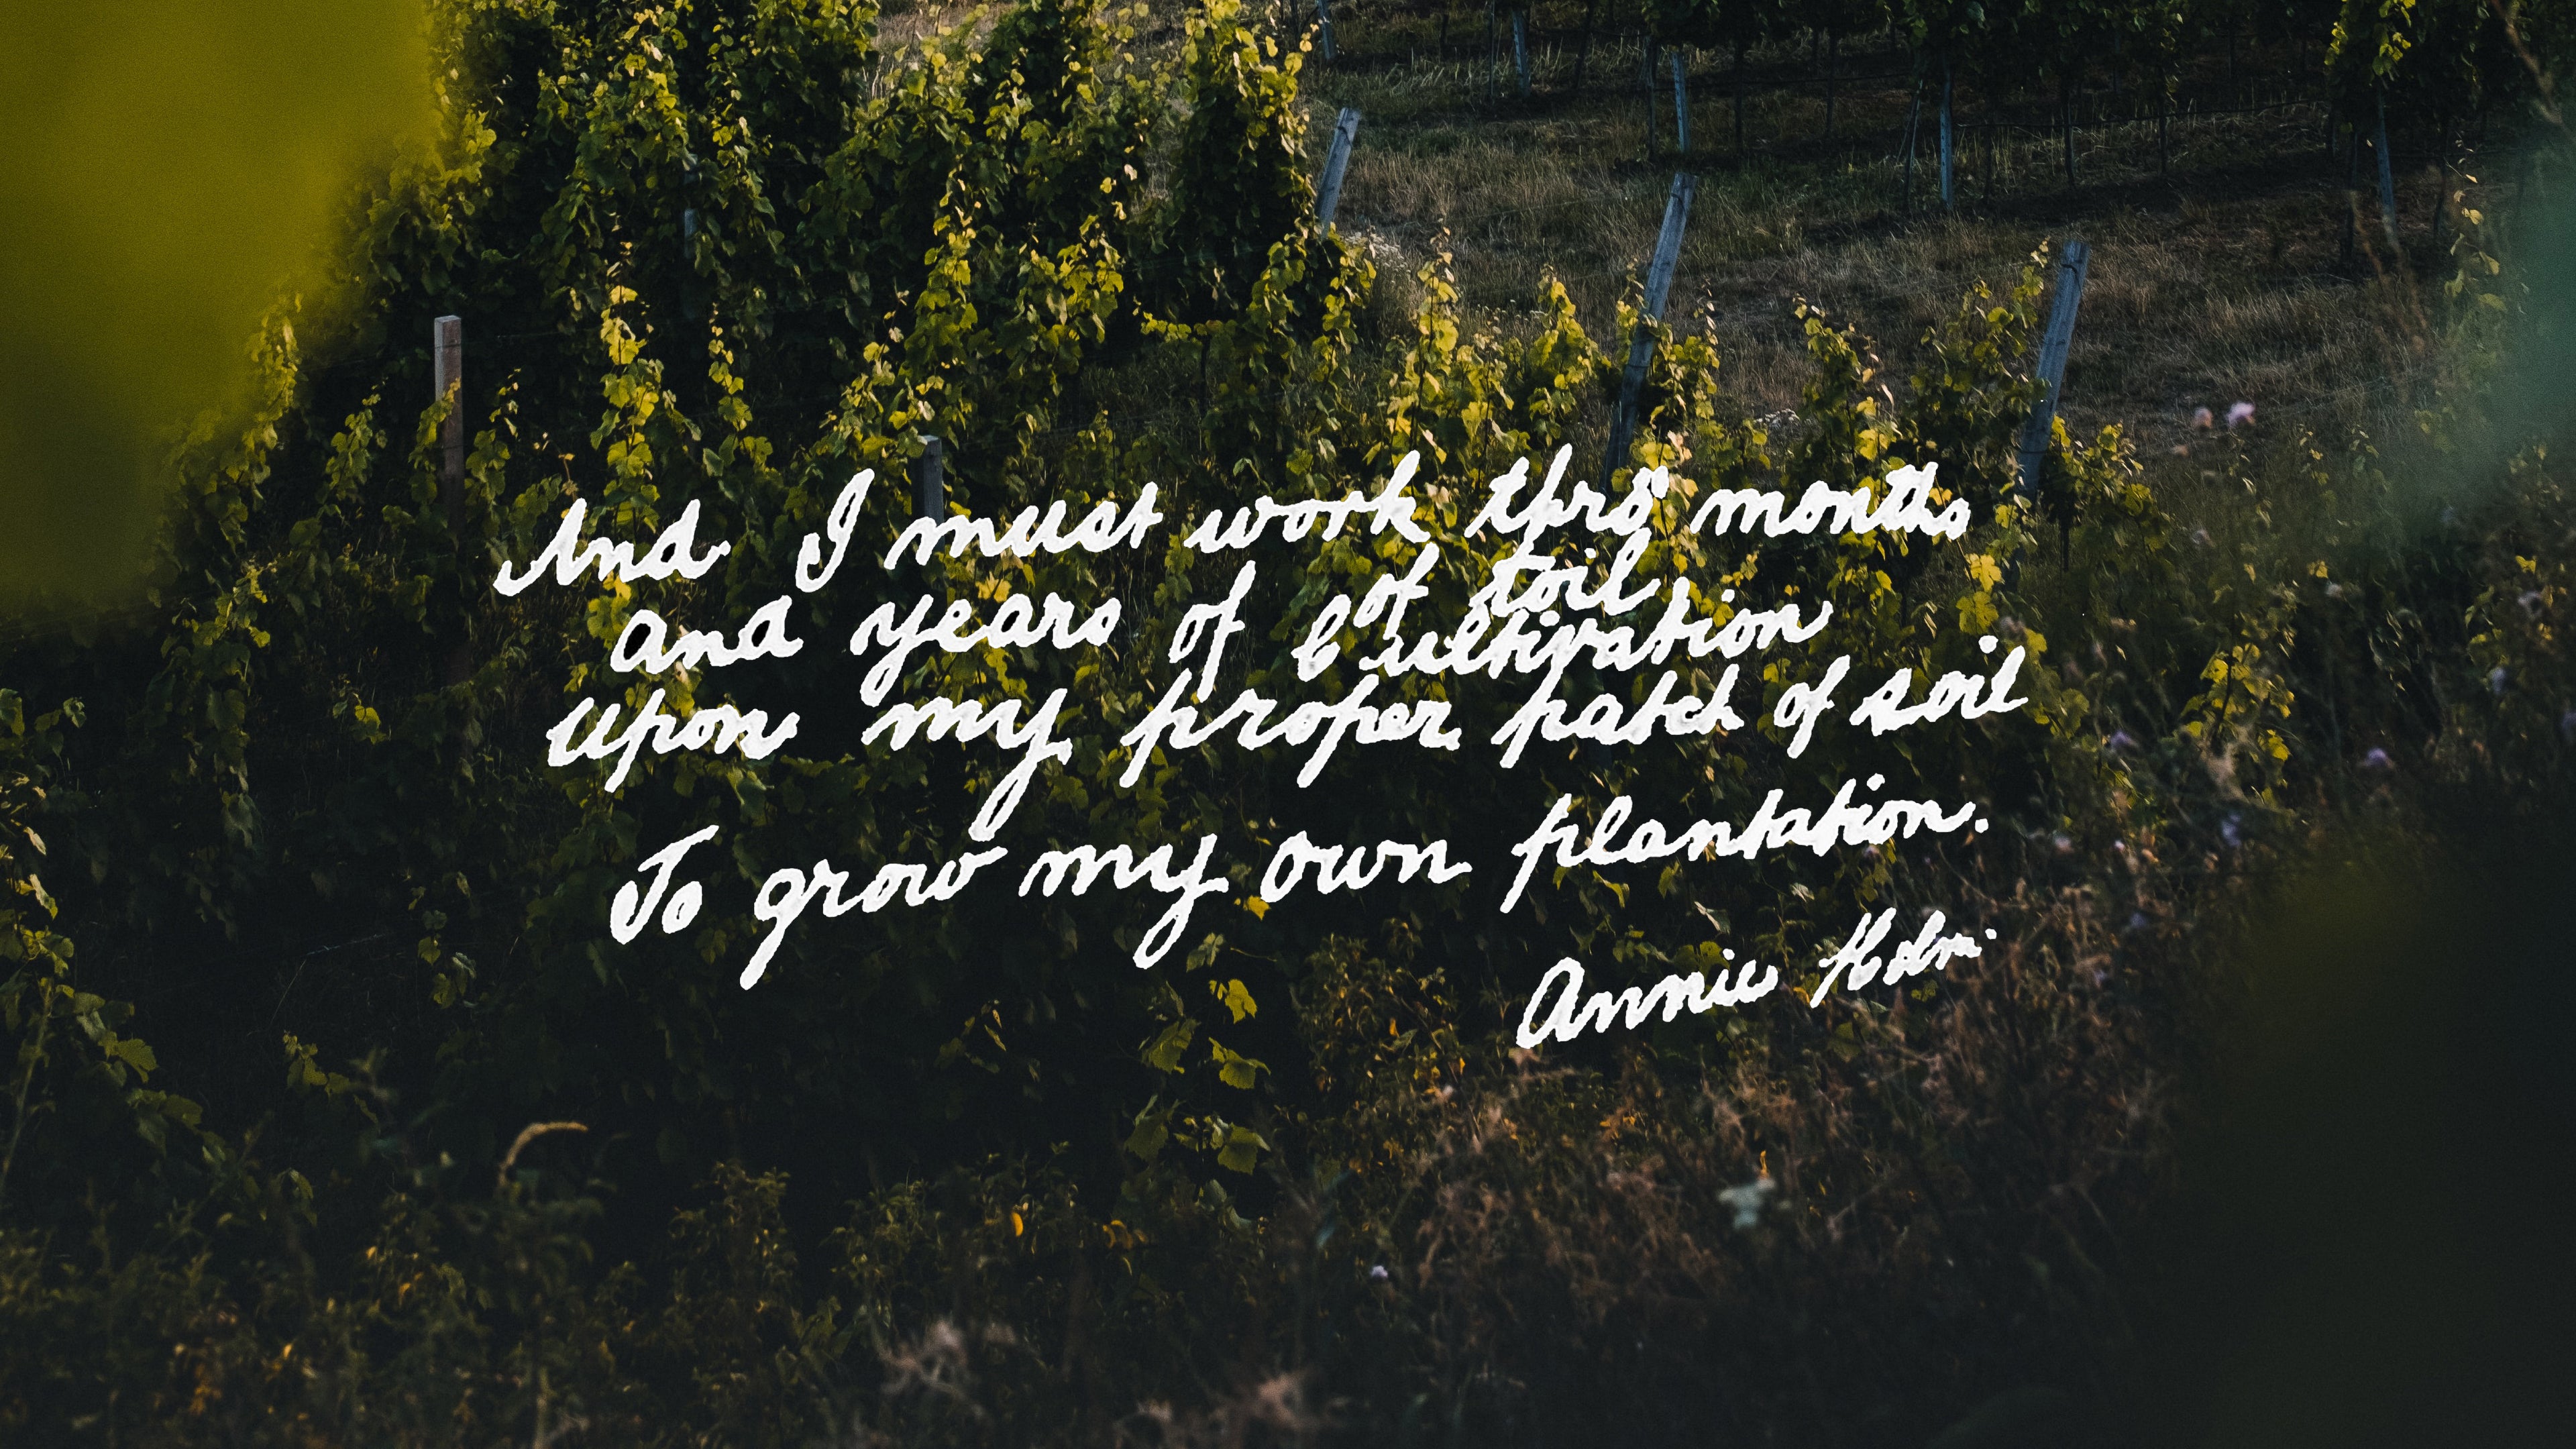 And I must work thro' months
and years of of toil cultivation
upon my proper patch of soil
To grow my own plantation.
Annie